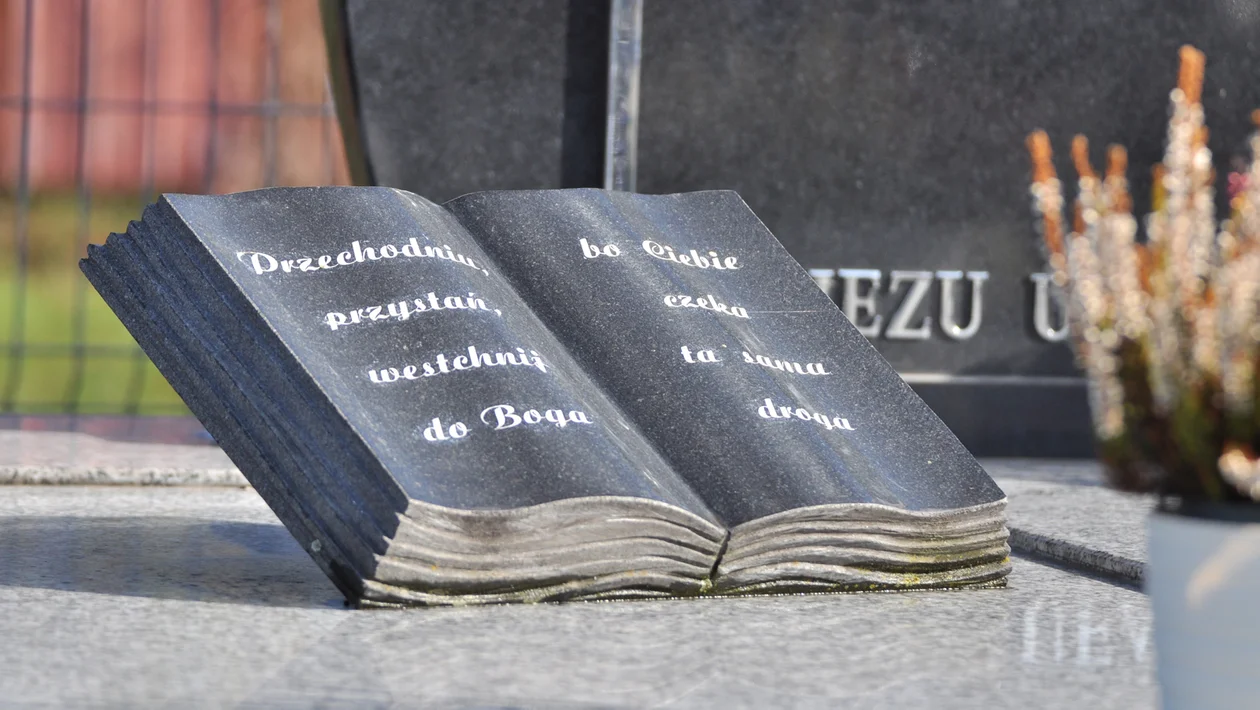 Przechodniu,
przystań,
westchnij
do Boga
bo Ciebie
czeka
ta sama
droga
JEZU U